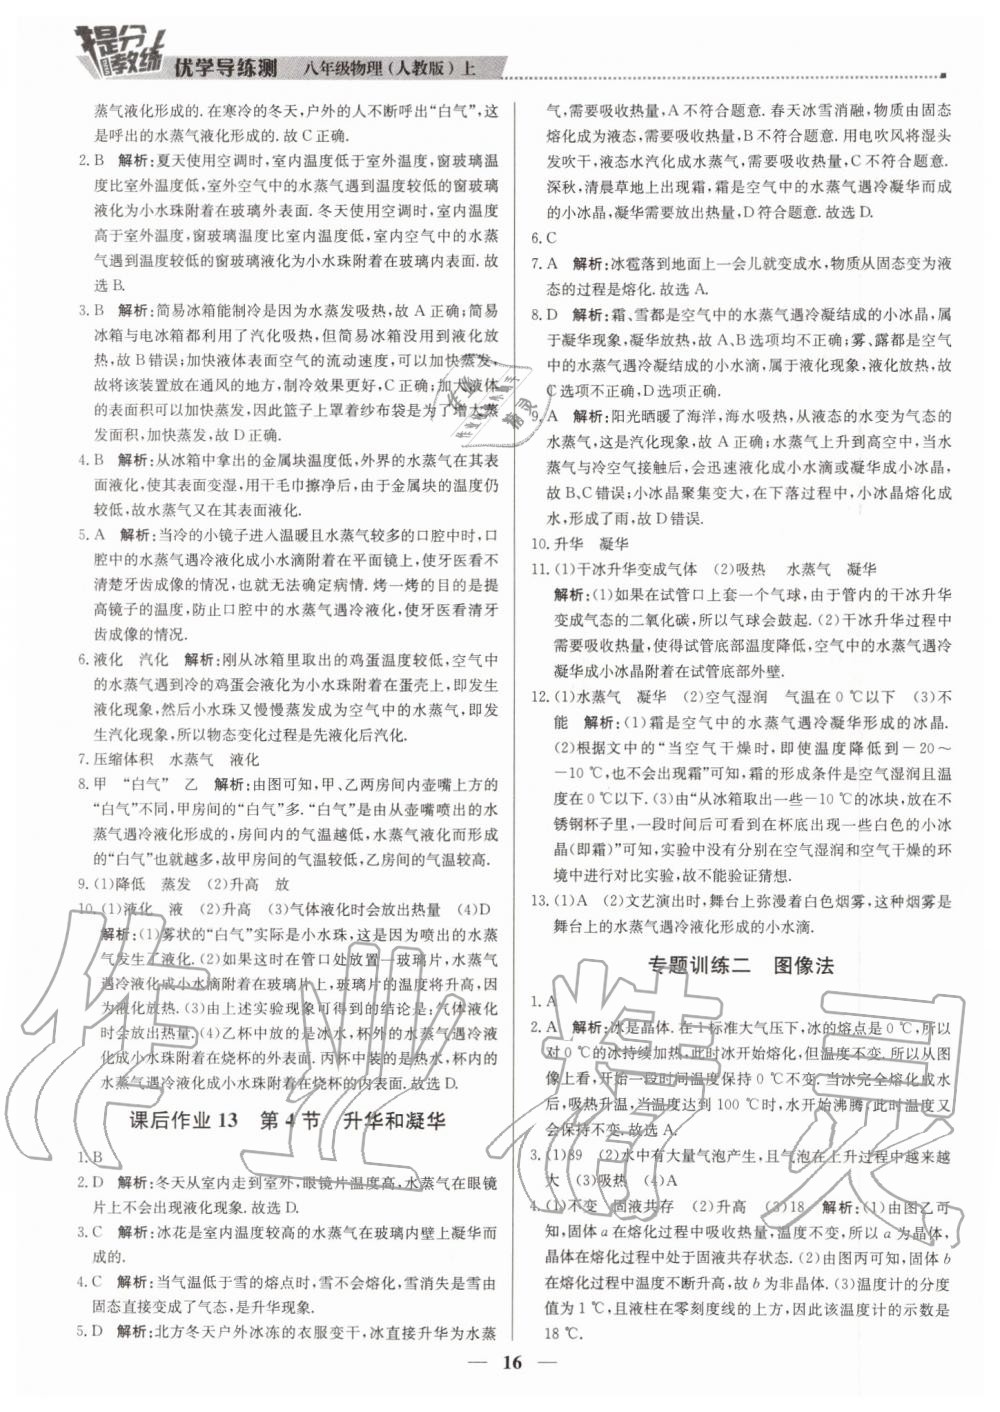 提分教练 优学导练测 八年级物理(人教版)上
蒸气液化形成的. 在寒冷的冬天,户外的人不断呼出“白气”,这
是呼出的水蒸气液化形成的. 故 C 正确.
2. B 解析:夏天使用空调时,室内温度低于室外温度,窗玻璃温
度比室外温度低,室外空气中的水蒸气遇到温度较低的窗玻璃
液化为小水珠附着在玻璃外表面. 冬天使用空调时,室内温度
高于室外温度,窗玻璃温度比室内温度低,室内空气中的水蒸
气遇到温度较低的窗玻璃液化为小水珠附着在玻璃内表面. 故
选 B.
3. B 解析:简易冰箱能制冷是因为水蒸发吸热,故 A 正确;简易
冰箱与电冰箱都利用了汽化吸热,但简易冰箱没用到液化放
热,故 B 错误;加快液体表面空气的流动速度,可以加快蒸发,
故将该装置放在通风的地方,制冷效果更好,C 正确;加大液体
的表面积可以加快蒸发,因此篮子上罩着纱布袋是为了增大蒸
发面积,加快蒸发,故 D 正确.
4. B 解析:从冰箱中拿出的金属块温度低,外界的水蒸气在其表
面液化,使其表面变湿,用干毛巾擦净后,由于金属块的温度仍
较低,故水蒸气又在其表面液化.
5. A 解析:当冷的小镜子进入温暖且水蒸气较多的口腔中时,口
腔中的水蒸气遇冷液化成小水滴附着在平面镜上,使牙医看不
清楚牙齿成像的情况,也就无法确定病情. 烤一烤的目的是提
高镜子的温度,防止口腔中的水蒸气遇冷液化,使牙医看清牙
齿成像的情况.
6. 液化 汽化 解析:刚从冰箱里取出的鸡蛋温度较低,空气中
的水蒸气遇到冷的鸡蛋会液化为小水珠附着在蛋壳上,即发生
液化现象,然后小水珠又慢慢蒸发成为空气中的水蒸气,即发
生汽化现象,所以物态变化过程是先液化后汽化.
7. 压缩体积 水蒸气 液化
8. 甲 “白气” 乙 解析:由图可知,甲、乙两房间内壶嘴上方的
“白气”不同,甲房间的“白气”多. “白气”是由从壶嘴喷出的水
蒸气遇冷液化形成的,房间内的气温越低,水蒸气液化而形成
的“白气”也就越多,故甲房间的气温较低,乙房间的气温较高.
9. (1)降低 蒸发 (2)升高 放
10. (1)液化 液 (2)升高 (3)气体液化时会放出热量 (4)D
解析:(1)雾状的“白气”实际是小水珠,这是喷出来的水蒸
气发生了液化. (2)如果这时在管口处放置一玻璃片,水蒸气
液化成小水滴附着在玻璃片上,玻璃片的温度将升高,因
为液化放热. (3)由上述实验现象可得到的结论是:气体液化
时会放出热量. (4)乙杯中放的是冰水,杯外的水蒸气遇冷液
化成小水珠附着在烧杯的外表面. 丙杯中装的是热水,杯内的
水蒸气遇冷液化成小水珠附着在烧杯的内表面. 故选 D.
课后作业 13 第 4 节 升华和凝华
1. B
2. D 解析:冬天从室内走到室外,眼镜片温度高,水蒸气在眼镜
片上不会出现液化现象. 故选 D.
3. C 解析:冰花是室内温度较高的水蒸气在玻璃内壁上凝华而
成的.
4. C 解析:当气温低于雪的熔点时,雪不会熔化,雪消失是雪由
固态直接变成了气态,是升华现象.
5. D 解析:北方冬天户外冰冻的衣服变干,冰直接升华为水蒸
气,需要吸收热量,A 不符合题意. 春天冰雪消融,物质由固态
熔化成为液态,需要吸收热量,B 不符合题意. 用电吹风将湿头
发吹干,液态水汽化成水蒸气,需要吸收热量,C 不符合题意.
深秋,清晨草地上出现霜,霜是空气中的水蒸气遇冷凝华而成
的小冰晶,凝华需要放出热量,D 符合题意. 故选 D.
6. C
7. A 解析:冰雹落到地面上一会儿就变成水,物质从固态变为液
态的过程是熔化. 故选 A.
8. D 解析:霜、雪都是空气中的水蒸气遇冷凝结成的小冰晶,属
于凝华现象,凝华放热,故 A、B 选项均不正确;雾、露都是空气
中的水蒸气遇冷凝结成的小水滴,属于液化现象,液化放热,故
C 选项不正确,D 选项正确.
9. A 解析:阳光晒暖了海洋,海水吸热,从液态的水变为气态的
水蒸气,这是汽化现象,故 A 正确;水蒸气上升到高空中,当水
蒸气与冷空气接触后,会迅速液化成小水滴或凝华成小冰晶,
故 B、C 错误;小冰晶聚集变大,在下落过程中,小冰晶熔化成
水,形成了雨,故 D 错误.
10. 升华 凝华
11. (1)干冰升华变成气体 (2)吸热 水蒸气 凝华
解析:(1)如果在试管口上套一个气球,由于管内的干冰升华
变成气态的二氧化碳,所以气球会鼓起. (2)干冰升华过程中
需要吸收热量,使得试管底部温度降低,空气中的水蒸气遇冷
凝华成小冰晶附着在试管底部外壁.
12. (1)水蒸气 凝华 (2)空气湿润 气温在 0 ℃以下 (3)不
能 解析:(1)霜是空气中的水蒸气遇冷凝华形成的冰晶.
(2)根据文中的“当空气干燥时,即使温度降低到-20~
-10 ℃,也不会出现霜”可知,霜的形成条件是空气湿润且温
度在 0 ℃以下. (3)由“从冰箱取出一些-10 ℃的冰块,放在不
锈钢杯子里,一段时间后可看到在杯底出现一些白色的小冰
晶(即霜)”可知,实验中没有分别在空气湿润和空气干燥的环
境中进行对比实验,故不能验证猜想.
13. (1)A (2)文艺演出时,舞台上弥漫着白色烟雾,这种烟雾是
舞台上的水蒸气遇冷液化形成的小水滴.
专题训练二 图像法
1. A
2. A 解析:冰是晶体. 在 1 标准大气压下,冰的熔点是 0 ℃,所以
对 0 ℃的冰持续加热,此时冰开始熔化,但温度不变. 所以从图
像上看,开始一段时间温度保持 0 ℃不变. 当冰完全熔化成水
后,吸热升温,当温度达到 100 ℃时,水开始沸腾,此时温度又
会保持不变. 故选 A.
3. (1)89 (2)水中有大量气泡产生,且气泡在上升过程中越来越
大 (3)吸热 (4)A
4. (1)不变 固液共存 (2)升高 (3)18 解析:(1)由图乙可
知,固体 a 在熔化过程中吸收热量,温度不变,所以 a 为晶体,
晶体在熔化过程中处于固液共存状态. (2)由图丙可知,固体 b
在熔化过程中温度不断升高,故 b 为非晶体. (3)温度计的分度
值为 1 ℃,且液柱在零刻度线的上方,因此该温度计的示数是
18 ℃.
16
作业精灵